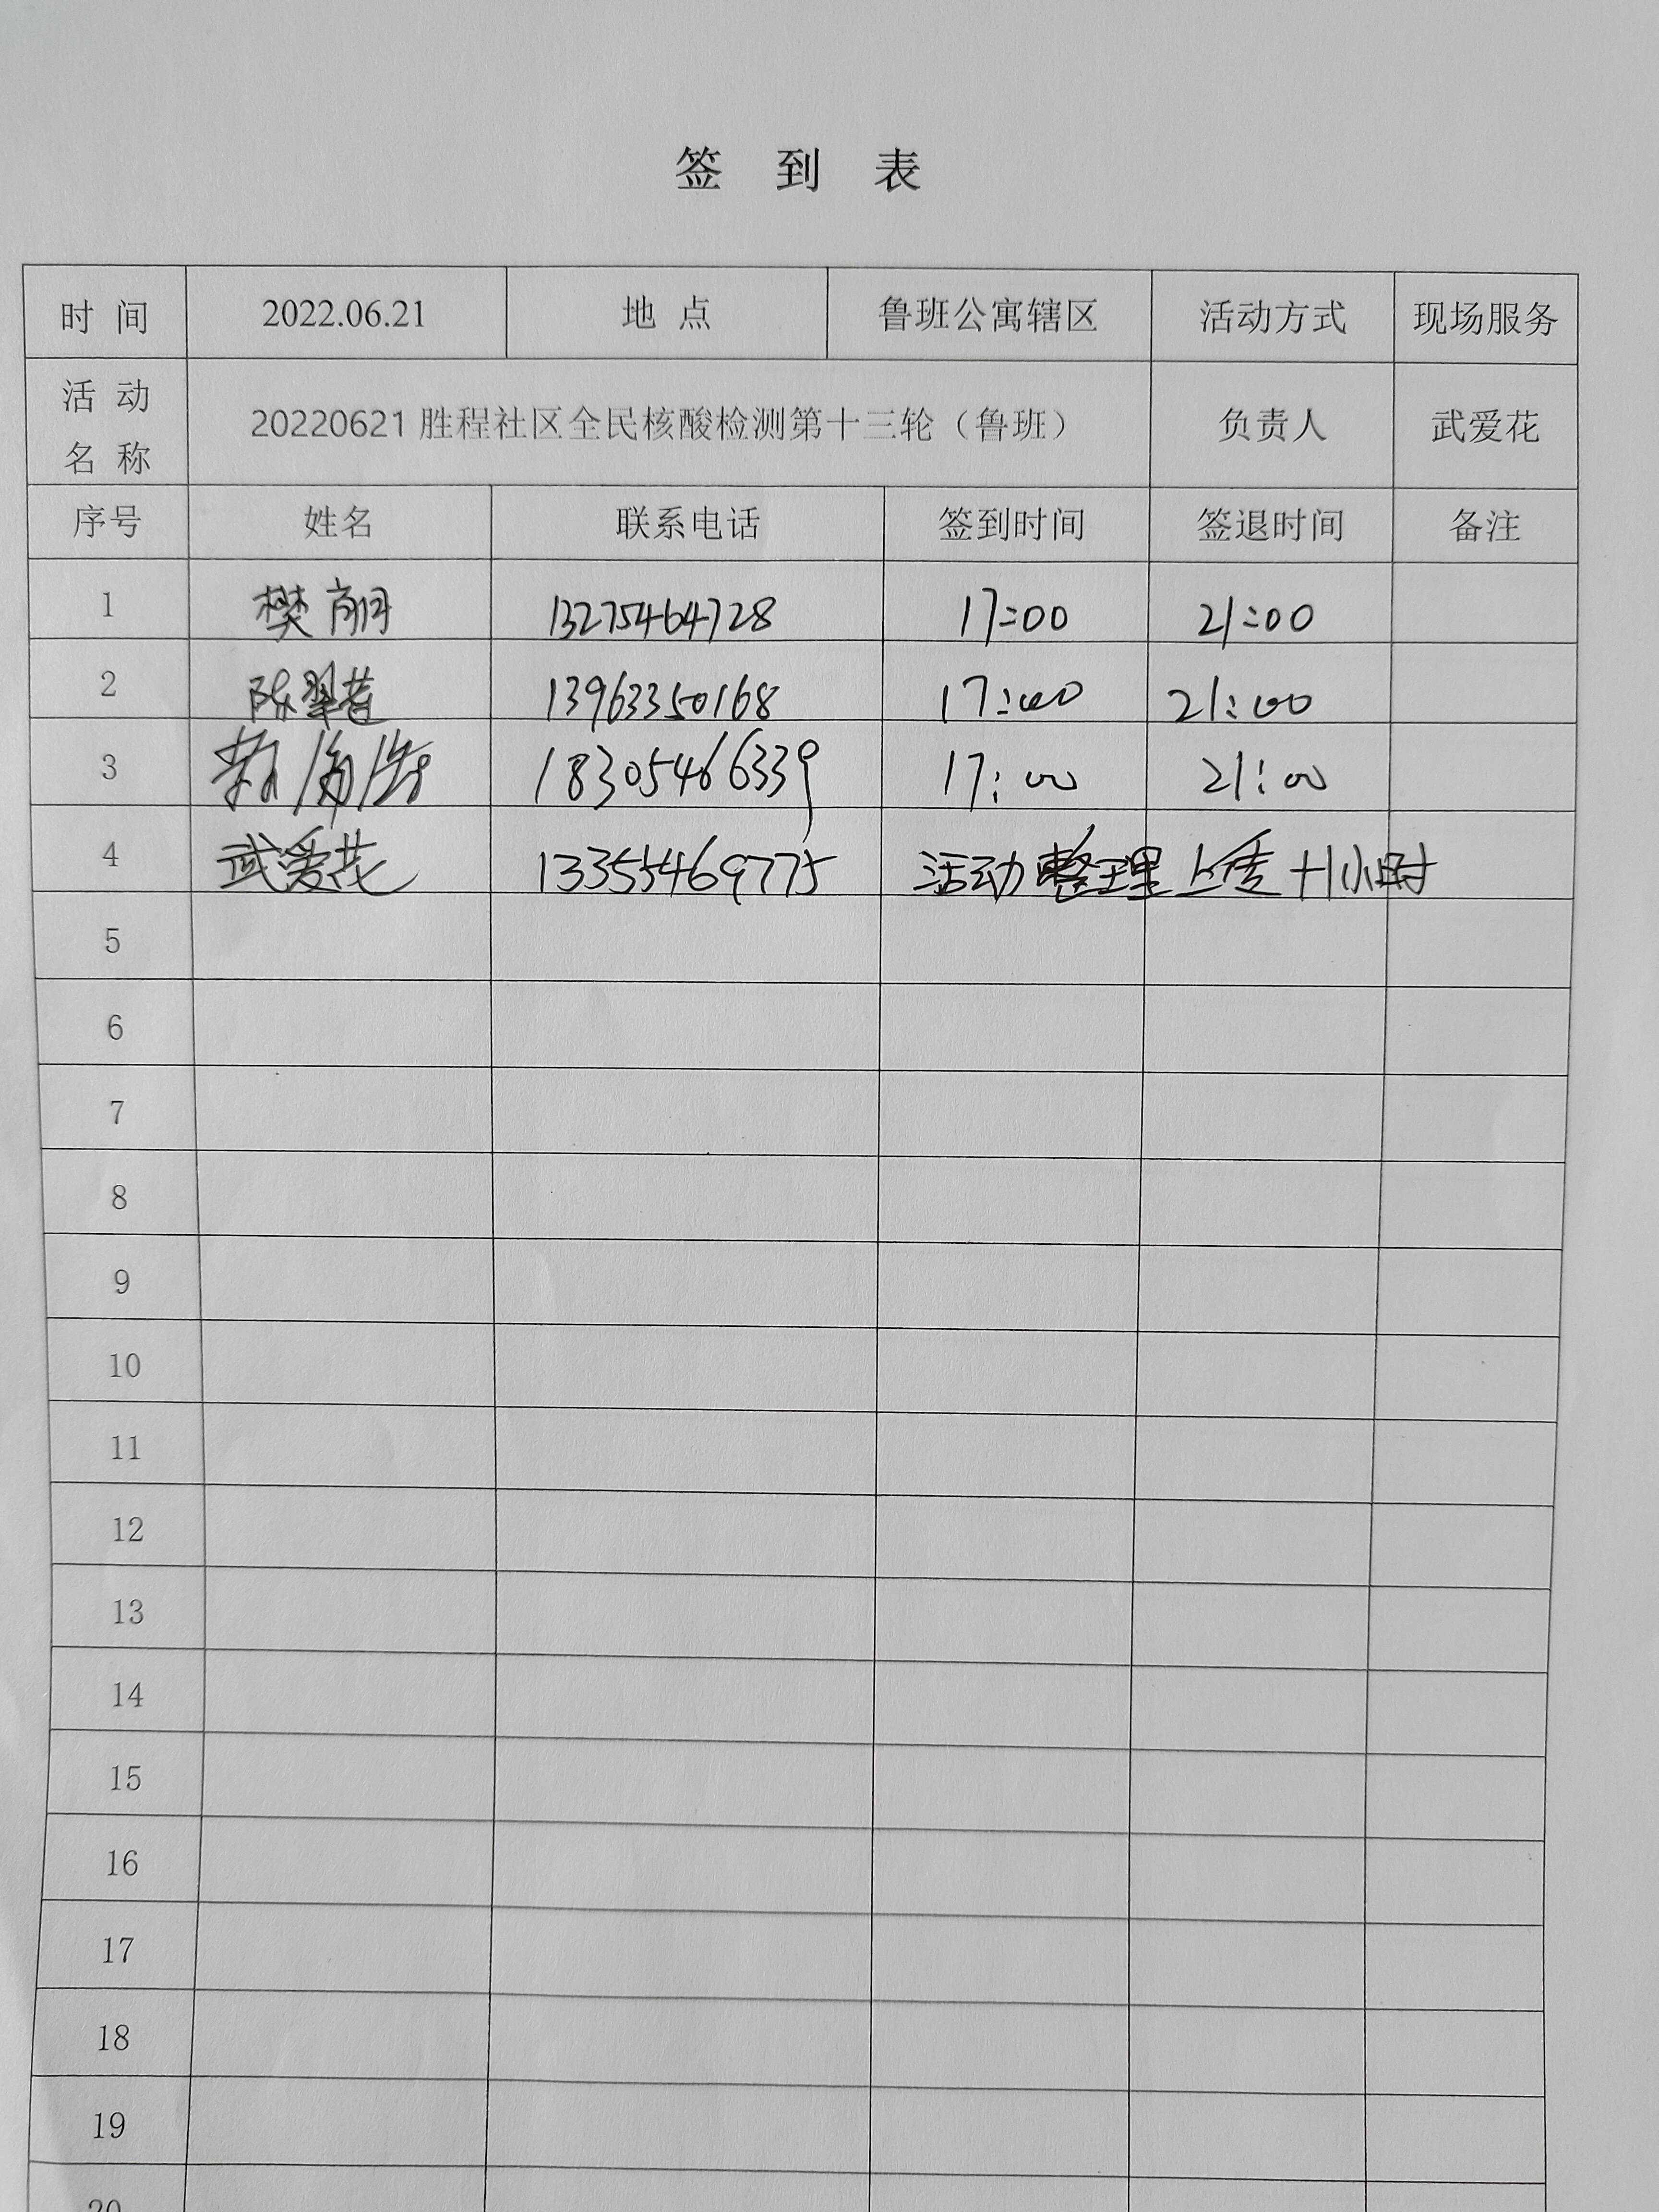 签 到 表
时 间 2022.06.21 地 点 鲁班公寓辖区 活动方式 现场服务
活 动
名 称 20220621 胜程社区全民核酸检测第十三轮（鲁班） 负责人 武爱花
序号 姓名 联系电话 签到时间 签退时间 备注
1 樊 13275464728 17:00 21:00
2 陈翠 13963350168 17:00 21:00
3 18305466339 17:00 21:00
4 武爱花 13355469775 活动整理上传+1小时
5
6
7
8
9
10
11
12
13
14
15
16
17
18
19
20